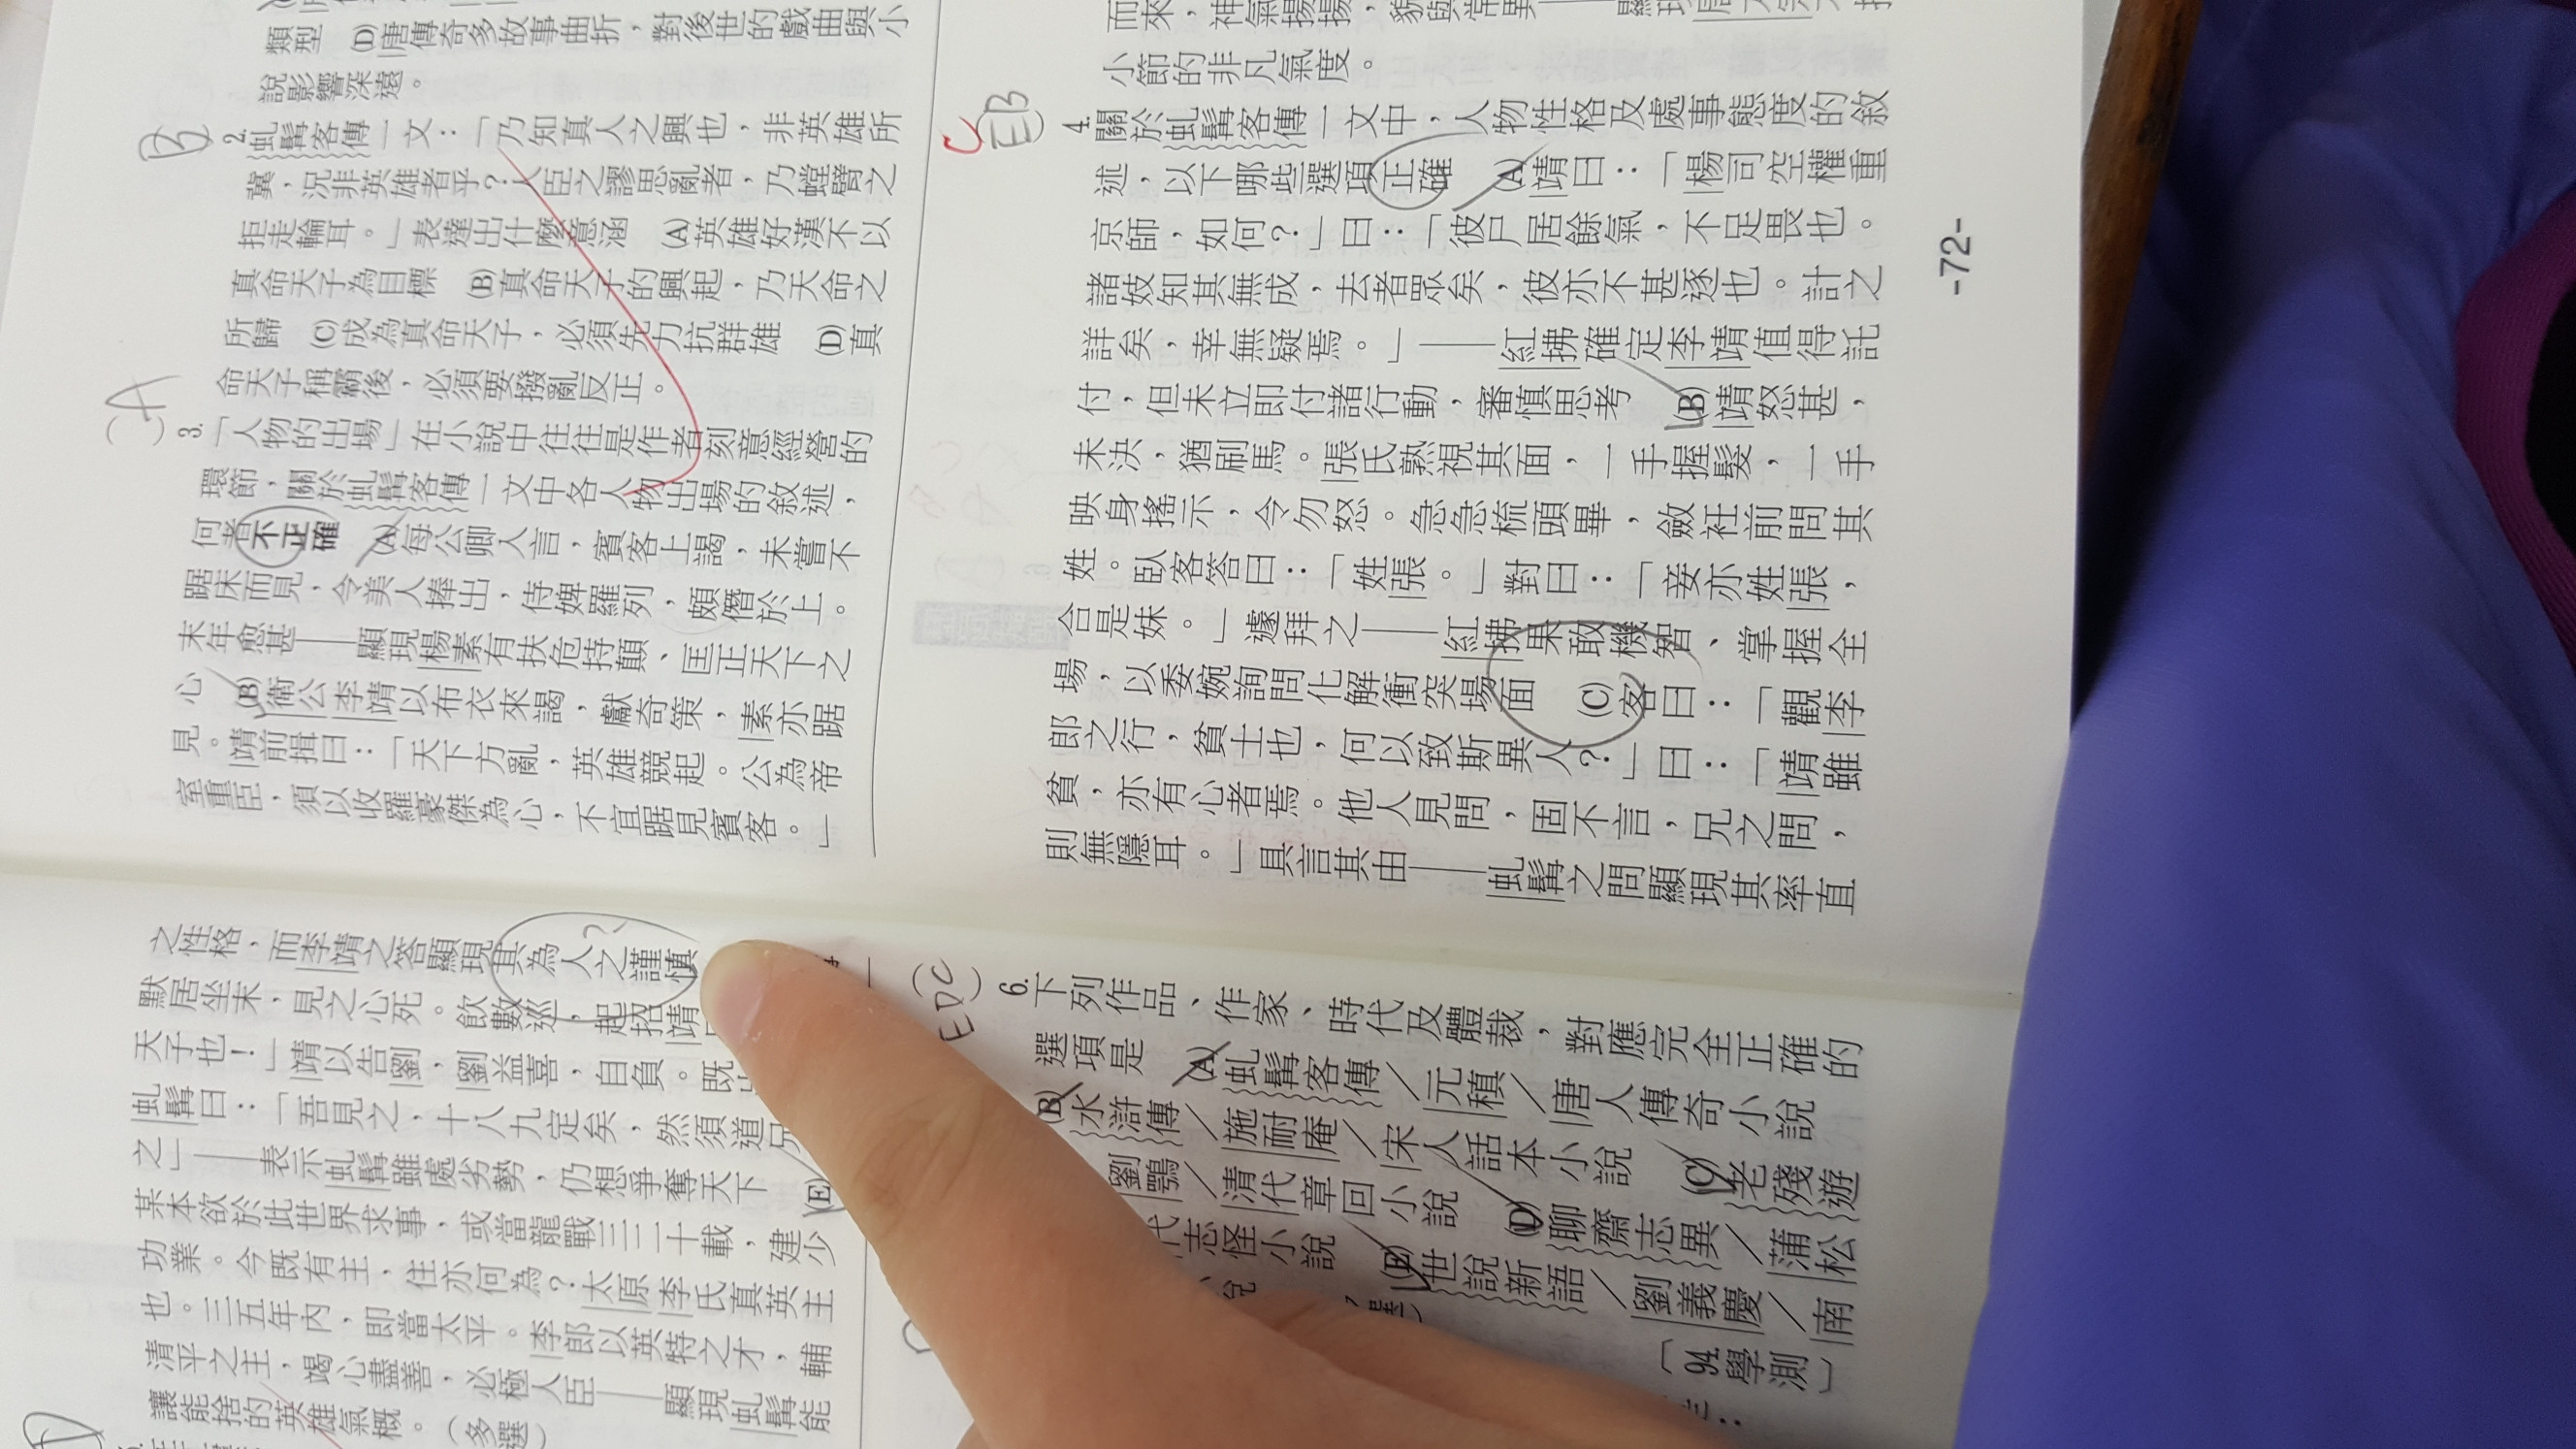 類型　(D)唐傳奇多故事曲折，對後世的戲曲與小
說影響深遠。
B
2.虬髯客傳一文：「乃知真人之興也，非英雄所
冀，況非英雄者乎？人臣之謬思亂者，乃螳臂之
拒走輪耳。」表達出什麼意涵　(A)英雄好漢不以
真命天子為目標　(B)真命天子的興起，乃天命之
所歸　(C)成為真命天子，必須先力抗群雄　(D)真
命天子稱霸後，必須要撥亂反正。
A
3.「人物的出場」在小說中往往是作者刻意經營的
環節，關於虬髯客傳一文中各人物出場的敘述，
何者不正確　(A)每公卿入言，賓客上謁，未嘗不
踞床而見，令美人捧出，侍婢羅列，頗僭於上。
末年愈甚——顯現楊素有扶危持顛、匡正天下之
心　(B)衛公李靖以布衣來謁，獻奇策，素亦踞
見。靖前揖曰：「天下方亂，英雄競起。公為帝
室重臣，須以收羅豪傑為心，不宜踞見賓客。」
小節的非凡氣度。
C
EB
4.關於虬髯客傳一文中，人物性格及處事態度的敘
述，以下哪些選項正確　(A)靖曰：「楊司空權重
京師，如何？」曰：「彼尸居餘氣，不足畏也。
諸妓知其無成，去者眾矣，彼亦不甚逐也。計之
詳矣，幸無疑焉。」——紅拂確定李靖值得託
付，但未立即付諸行動，審慎思考　(B)靖怒甚，
未決，猶刷馬。張氏熟視其面，一手握髮，一手
映身搖示，令勿怒。急急梳頭畢，斂衽前問其
姓。臥客答曰：「姓張。」對曰：「妾亦姓張，
合是妹。」遽拜之——紅拂果敢機智、掌握全
場，以委婉詢問化解衝突場面　(C)客曰：「觀李
郎之行，貧士也，何以致斯異人？」曰：「靖雖
貧，亦有心者焉。他人見問，固不言，兄之問，
則無隱耳。」具言其由——虬髯之問顯現其率直
-72-
之性格，而李靖之答顯現其為人之謹慎
默居坐末，見之心死。飲數巡，起招靖
天子也！」靖以告劉，劉益喜，自負。既
虬髯曰：「吾見之，十八九定矣，然須道兄
之」——表示虬髯雖處劣勢，仍想爭奪天下　(E)
某本欲於此世界求事，或當龍戰三二十載，建少
功業。今既有主，住亦何為？太原李氏真英主
也。三五年內，即當太平。李郎以英特之才，輔
清平之主，竭心盡善，必極人臣——顯現虬髯能
讓能捨的英雄氣概。（多選）
EDC
6.下列作品、作家、時代及體裁，對應完全正確的
選項是　(A)虬髯客傳／元稹／唐人傳奇小說
(B)水滸傳／施耐庵／宋人話本小說　(C)老殘遊
劉鶚／清代章回小說　(D)聊齋志異／蒲松
代志怪小說　(E)世說新語／劉義慶／南
〔94.學測〕